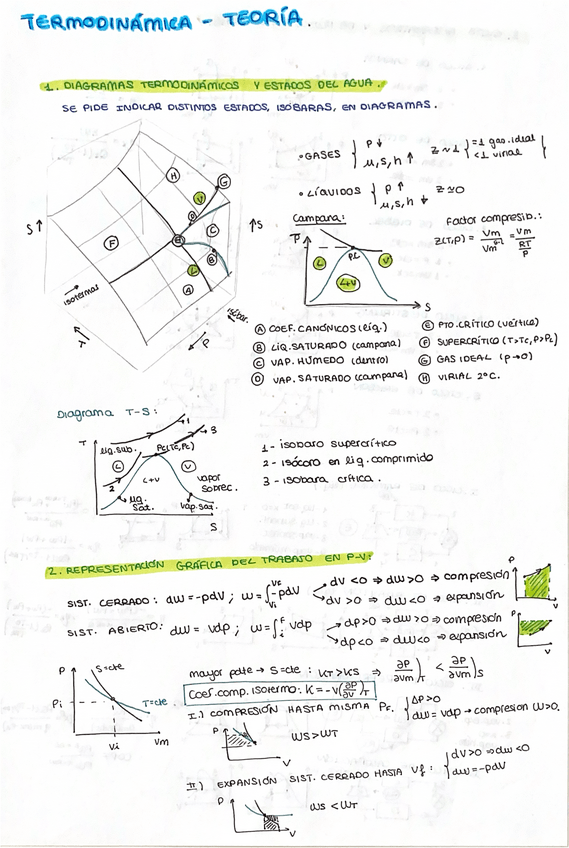 TERMODINÁMICA - TEORÍA.
1. DIAGRAMAS TERMODINÁMICOS Y ESTADOS DEL AGUA.
SE PIDE INDICAR DISTINTOS ESTADOS, ISÓBARAS, EN DIAGRAMAS.
•GASES { P↓ Z≈1 { =1 gas ideal
u,s,h ↑ <1 virial
•LÍQUIDOS { P↑ Z≈0
u,s,h ↓
Campana:
Factor compresib.:
Z(T,P) = Vm / Vm^GI = Vm / (RT/P)
S↑
H
G
V
D
C
E
F
B
L
A
↑S
isotermas
T
P
T
PC
L
V
L+V
S
Ⓐ COEF. CANÓNICOS (líq.)
Ⓑ LÍQ. SATURADO (campana)
Ⓒ VAP. HÚMEDO (dentro)
Ⓓ VAP. SATURADO (campana)
Ⓔ PTO. CRÍTICO (vértice)
Ⓕ SUPERCRÍTICO (T>Tc, P>Pc)
Ⓖ GAS IDEAL (P→0)
Ⓗ VIRIAL 2º C.
Diagrama T-S:
T
1
3
liq. sub.
Pc(Tc,Pc)
L
L+V
V
2
vapor
sobrec.
liq.
sat.
vap. sat.
S
1- isobaro supercrítico
2- isócoro en liq. comprimido
3- isobara crítica.
2. REPRESENTACIÓN GRÁFICA DEL TRABAJO EN P-V:
SIST. CERRADO: dw = -pdV ; w = ∫Vi Vf -pdV
dV <0 ⇒ dw >0 ⇒ compresión
dV >0 ⇒ dw <0 ⇒ expansión
SIST. ABIERTO: dw = Vdp ; w = ∫i f Vdp
dp>0 ⇒ dw >0 ⇒ compresión
dp<0 ⇒ dw<0 ⇒ expansión
P
V
P
V
P
S=cte
Pi
T=cte
Vi
Vm
mayor pdte → S=cte : KT>KS ⇒ ∂P/∂Vm)T < ∂P/∂Vm)S
Coef. comp. isotermo: K = -V(∂P/∂V)T
I.) COMPRESIÓN HASTA MISMA Pf. { ΔP>0
dw = Vdp → compresion W>0.
P
V
WS>WT
II) EXPANSIÓN SIST. CERRADO HASTA Vf : { dV>0 ⇒ dw<0
dw = -pdV
P
V
WS < WT